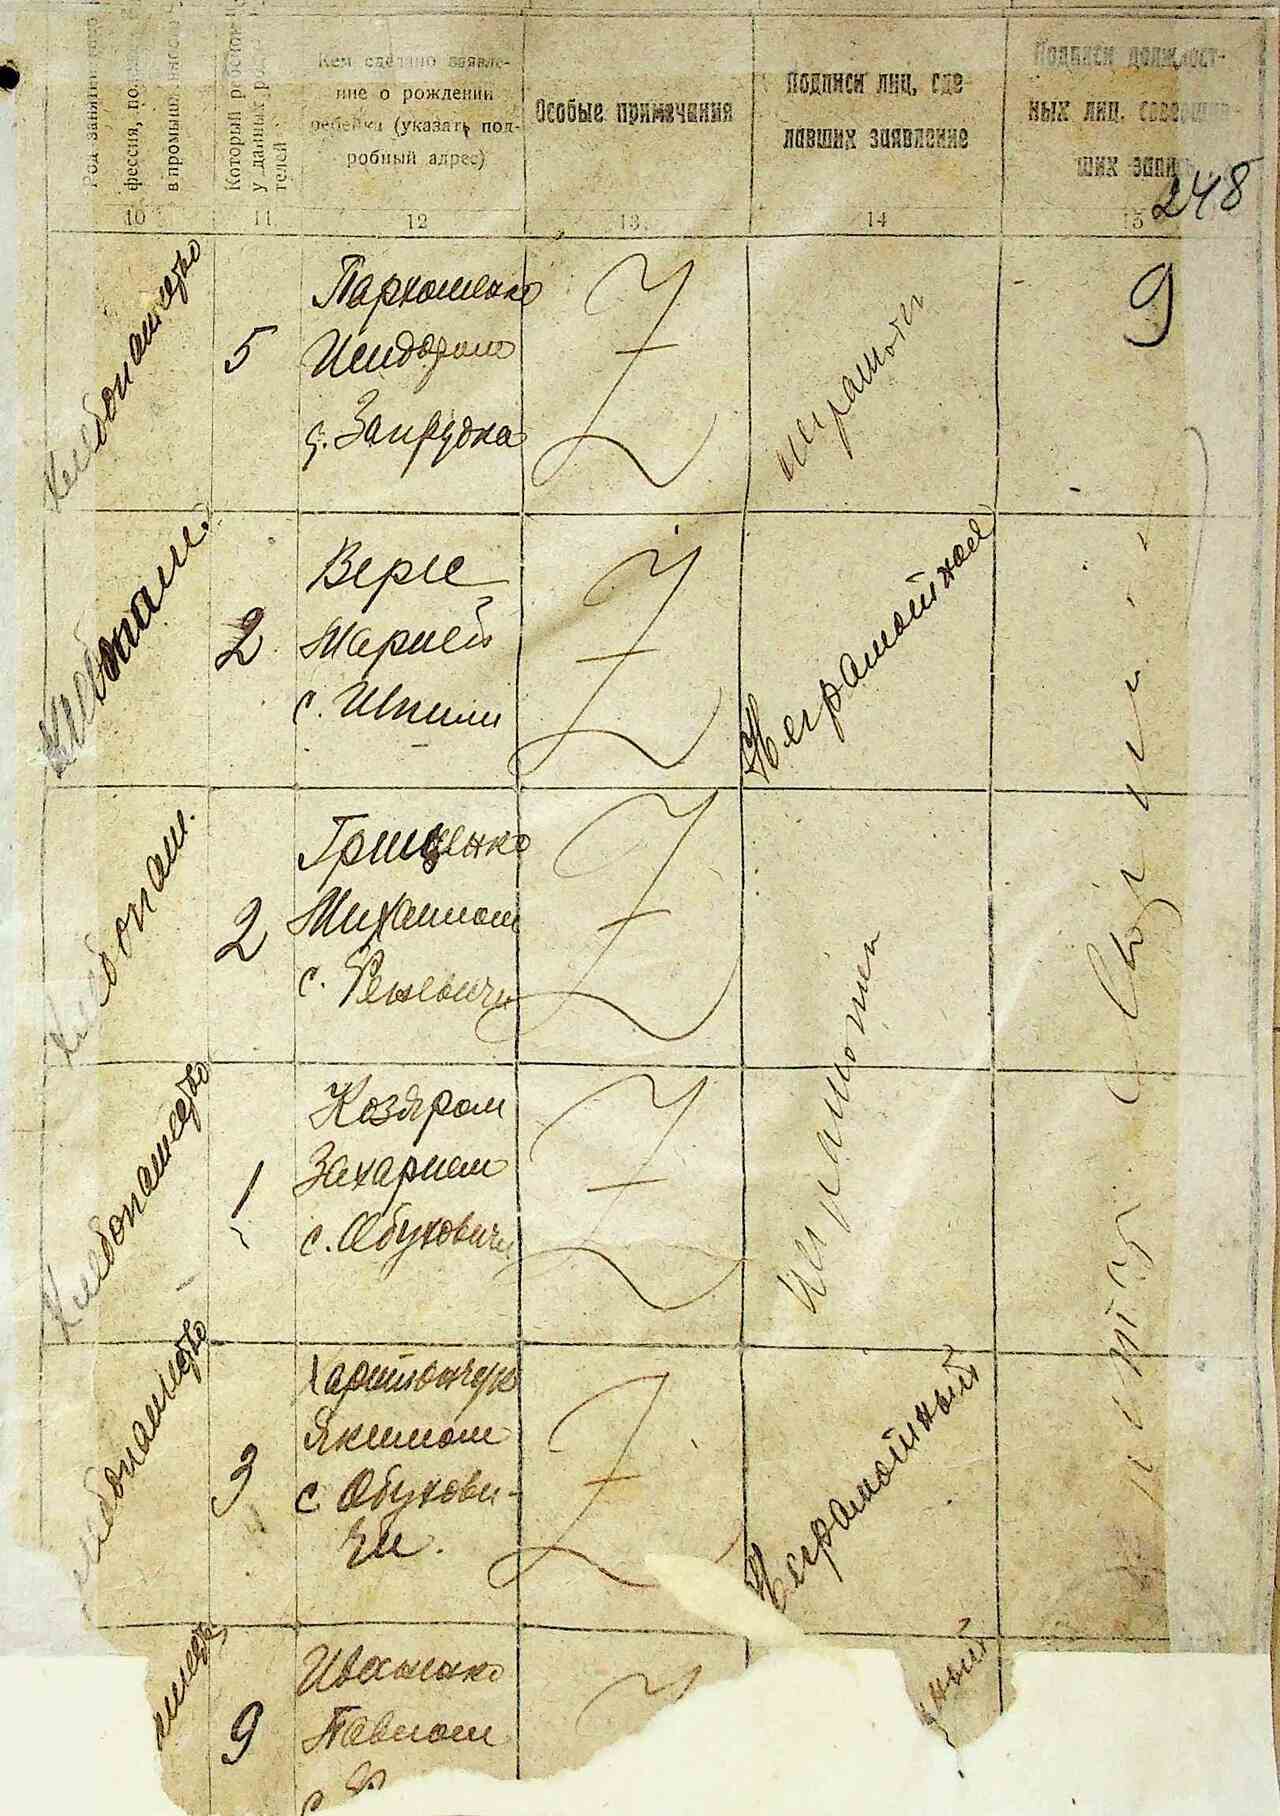 Род занятий
фессия, по
в промышл.
Который
у данных
телей
Кем сделано заявле-
ние о рождении
ребенка (указать под-
робный адрес)
Особые примечания
Подписи лиц, сде-
лавших заявление
Подписи должност-
ных лиц, совершив-
ших запи
248
10
11
12
13
14
15
Хлебопашество
5
Пархоменко
Исидором
д. Запрудка
неграмотн
9
Хлебопаш.
2
Верге
Марией
с. Шпили
Неграмотная
Хлебопаш.
2
Грищенко
Михаилом
с.
Хлебопашество
1
Козяром
Захарием
с. Обуховичи
неграмотны
хлебопашество
3
Харитончук
Якимом
с. Обухови-
чи.
Неграмотный
9
Иваненко
Павлом
с.
ный